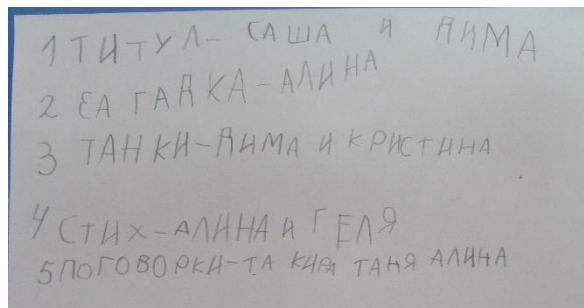 1 ТИТУЛ- САША И ДИМА
2 ЕАГАДКА-АЛИНА
3 ТАНКИ-ДИМА И КРИСТИНА
4 СТИХ-АЛИНА И ГЕЛЯ
5 ПОГОВОРКИ-ТА КИРА ТАНЯ АЛИНА